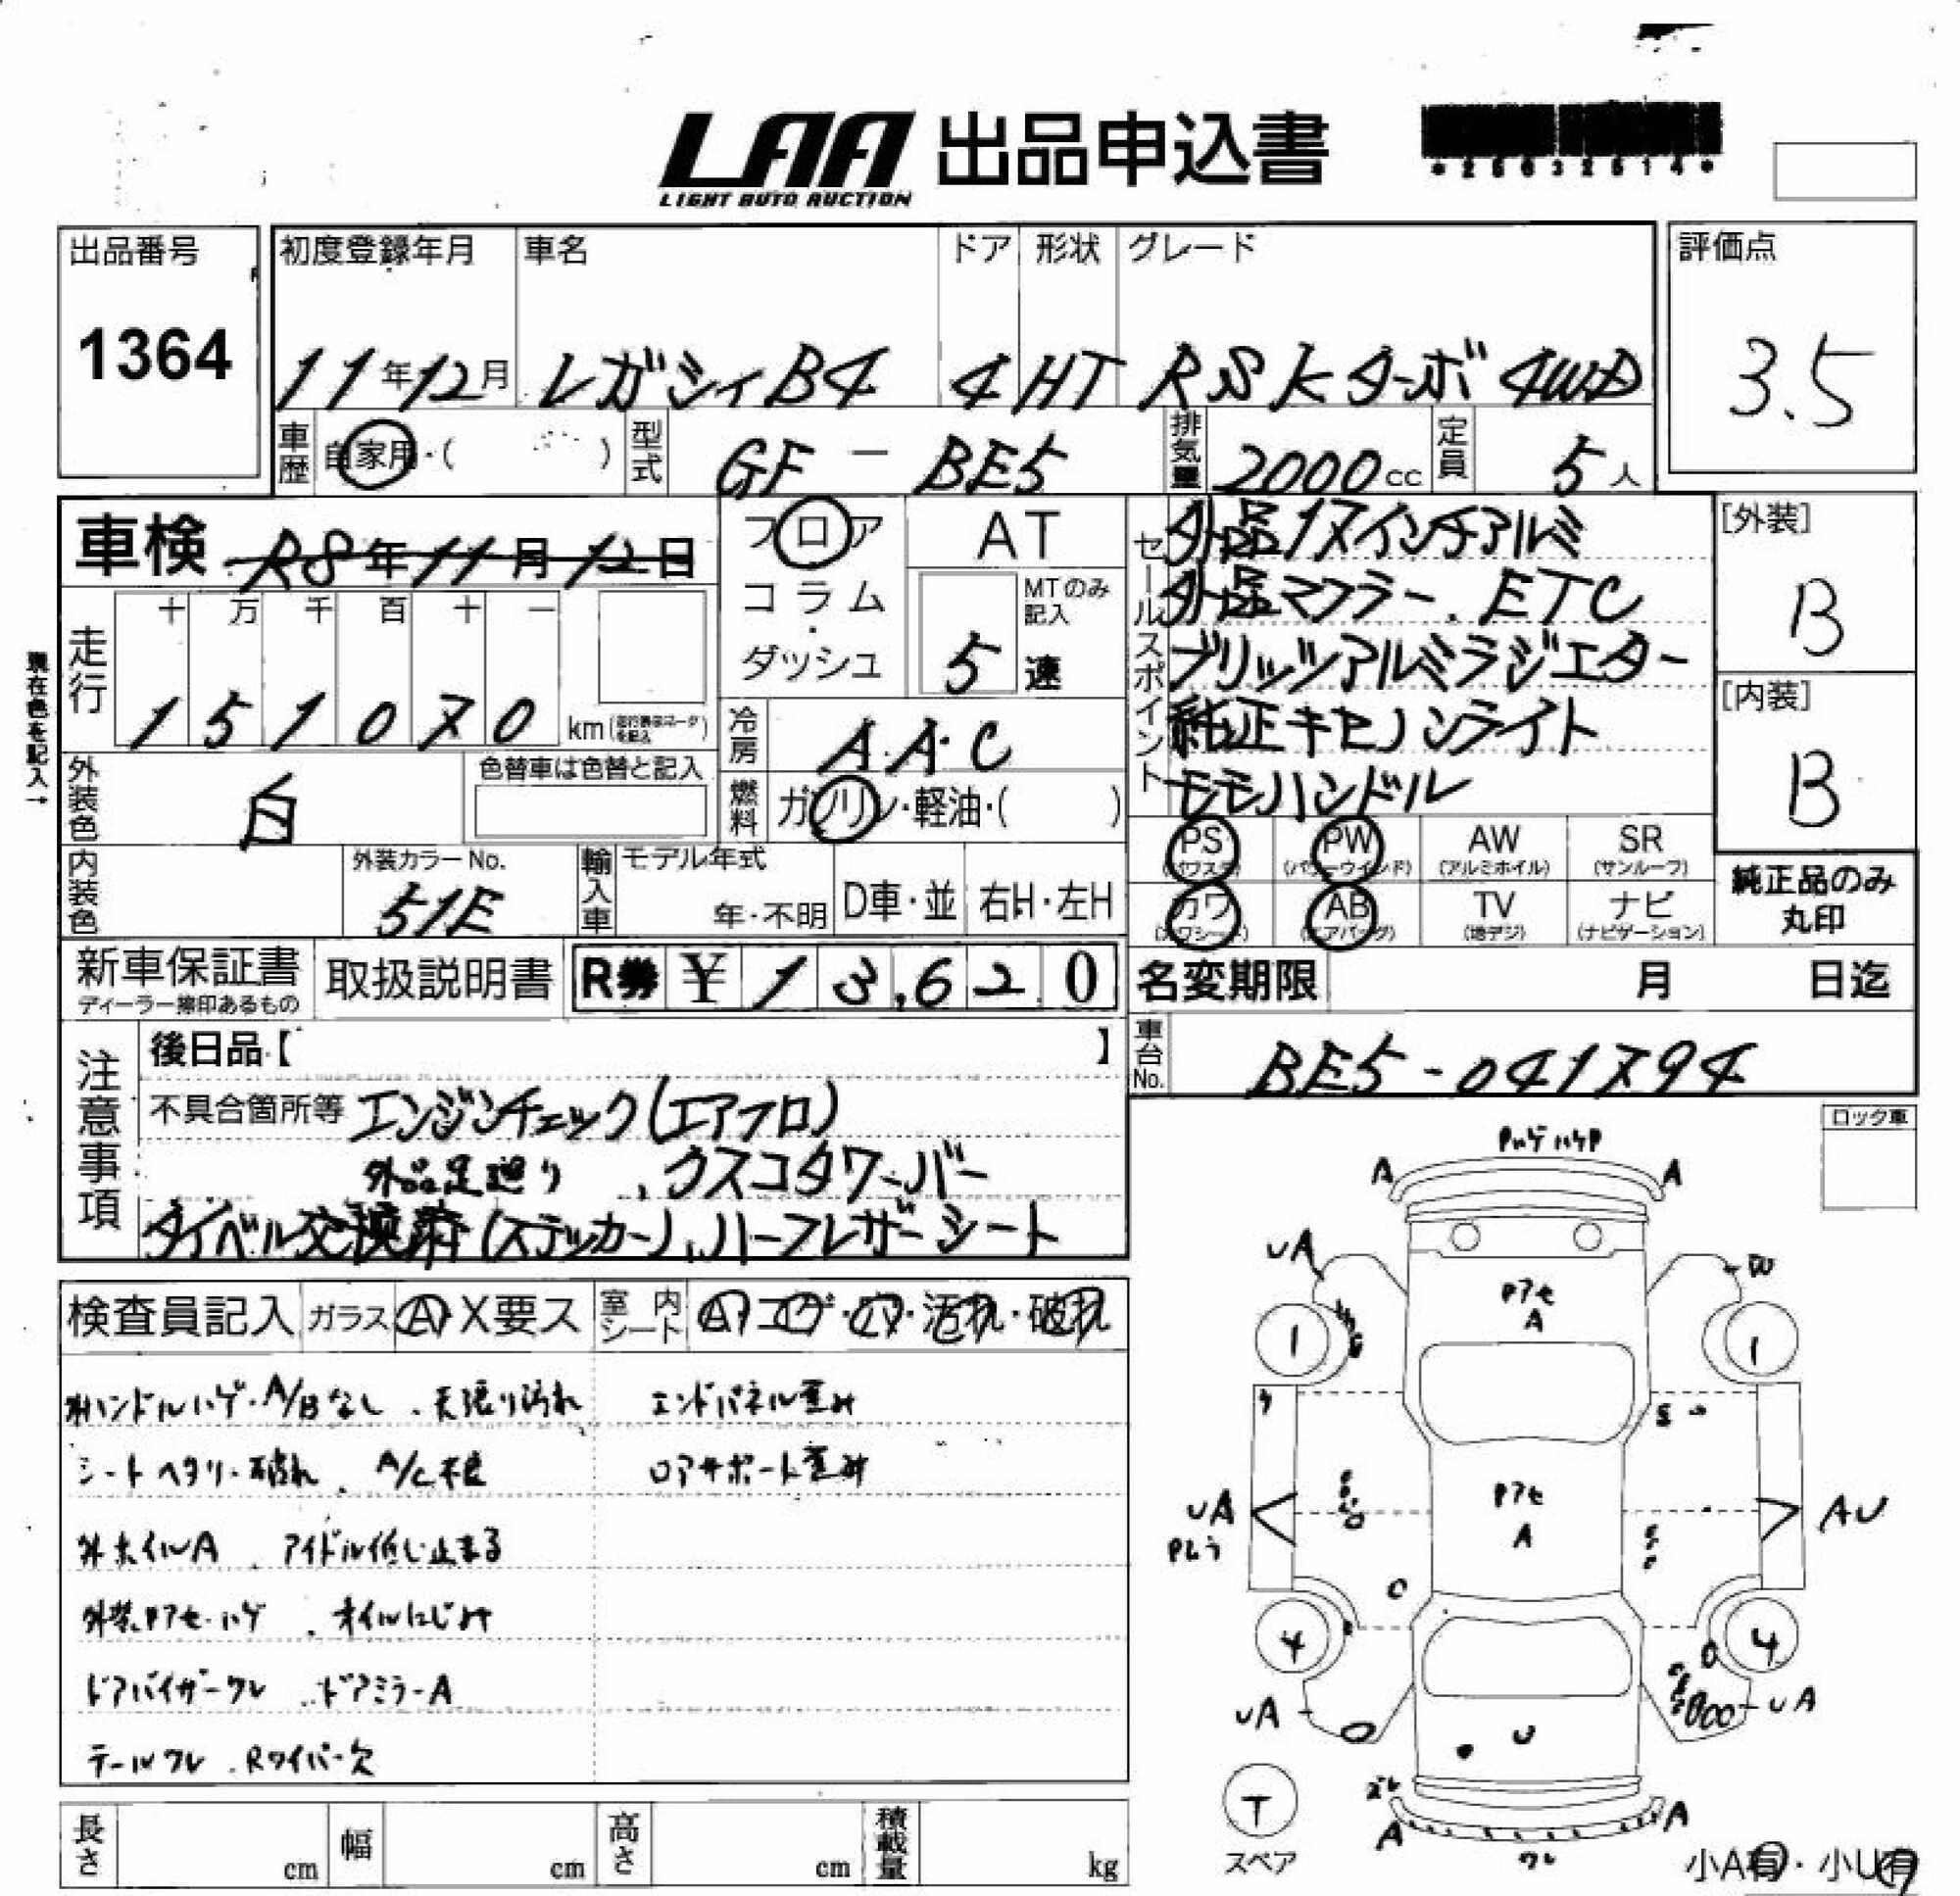 LAA 出品申込書
LIGHT AUTO AUCTION
出品番号
1364
初度登録年月 車名 ドア 形状 グレード
11年12月 レガシィB4 4 HT RSKターボ 4WD
評価点
3.5
車歴 自家用・( ) 型式 GF-BE5 排気量 2000cc 定員 5人
車検 R8年11月12日
フロア AT
コラム・ダッシュ
MTのみ記入
5速
現在色を記入→
走行 十万千百十一
151070 km
冷房 AAC
外装色 白 色替車は色替と記入
燃料 ガソリン・軽油・( )
内装色 外装カラーNo. 51E
輸入車 モデル年式 年・不明 D車・並 右H・左H
セールスポイント
外品17インチアルミ
外品マフラー.ETC
ブリッツアルミラジエター
純正キセノンライト
モモハンドル
[外装]
B
[内装]
B
PS PW AW (アルミホイル) SR (サンルーフ)
カワ AB TV (地デジ) ナビ (ナビゲーション)
純正品のみ
丸印
新車保証書 取扱説明書 R券 ¥13,620
ディーラー捺印あるもの
名変期限 月 日迄
車台No. BE5-041794
注意事項
後日品【 】
不具合箇所等 エンジンチェック(エアフロ)
外品足廻り、クスコタワーバー
タイベル交換済(ステッカー)、ハーフレザーシート
ロック車
検査員記入 ガラス A X要ス 室内シート A コゲ・穴・汚れ・破れ
外ハンドルハゲ・A/Bなし、天張り汚れ
エンドパネル歪み
シートヘタリ・破れ、A/C不良
ロアサポート歪み
外ホイルA、アイドル低し止まる
外装Pアセ・ハゲ、オイルにじみ
ドアバイザーワレ、ドアミラーA
テールワレ、Rワイパー欠
Pハゲ ハケP
A A
UA
Pアセ
A
1 1
S
UA
Pムラ
Pアセ
A
AU
4 4
UA UA
U
ズレ
A A
ワレ
T
スペア
小A有・小U有
長さ cm 幅 cm 高さ cm 積載量 kg